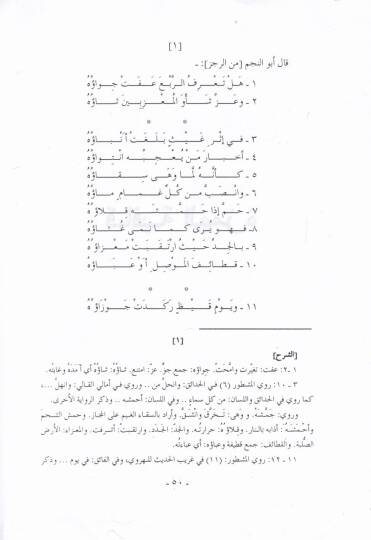 [١]
قال أبو النجم [من الرجز]: ـ
١ ـ هَلْ تَعْرِفُ الرَّبْعَ عَفَتْ جِواؤُهُ
٢ ـ وعَزَّ شَأْوَ المُعْزِبِينَ شَاؤُهُ
* *
٣ ـ في إثْرِ غَيْثٍ بَلَغَتْ أنْبَاؤُهُ
٤ ـ أخبارَ مَنْ يُعْجِبُهُ انْتِواؤُهُ
٥ ـ كَأنَّهُ لَمَّا وَهَى سِقَاؤُهُ
٦ ـ وانْصَبَّ مِن كُلِّ غَمَامٍ مَاؤُهُ
٧ ـ حَمٌّ إذا حَمَّشَهُ قَلاؤُهُ
٨ ـ فَهْوَ يُرَى كَما نَمَى غُثَاؤُهُ
٩ ـ بالجَلْدِ حَيْثُ ارْتَقَبَتْ مَعْزَاؤُهُ
١٠ ـ قَطَائِفَ المَوْصِلِ أوْ عَبَاؤُهُ
* *
١١ ـ ويَوْمِ قَيْظٍ رَكَدَتْ جَوْزَاؤُهُ
[١]
[الشرح]
١ ـ ٢: عفت: تغيرت وامَّحَتْ. جواؤه: جمع جوٍّ. عزّ: امتنع. شاؤهُ: شاؤهُ أي أمَدَهُ وغايته.
٣ ـ ١٠: روي المشطور (٦) في الحدائق: وانحلَّ من .. وروي في أمالي القالي: وانهلَّ ...،
كما روي في الحدائق واللسان: من كل سماءٍ .. وفي اللسان: أحمشه .. وذكر الرواية الأخرى.
وروي: حَمَّشَهُ. و وَهَى: تَخَرَّقَ وانْشَقَّ. وأراد بالسقاء الغيم على المجاز. وحمش الشحمَ
وأَحْمَشَهُ: أذابه بالنار. وقِلاؤهُ: حرارته. والجَلَدُ: الجَدَد. وارتقبتْ: أشرفت. والمعزاء: الأرض
الصُّلبة. والقطائف: جمع قطيفة وعباؤه: أي عباءته.
١١ ـ ١٢: روي المشطور: (١١) في غريب الحديث للهروي، وفي الفائق: في يوم ... وذكر
ـ ٥٠ ـ